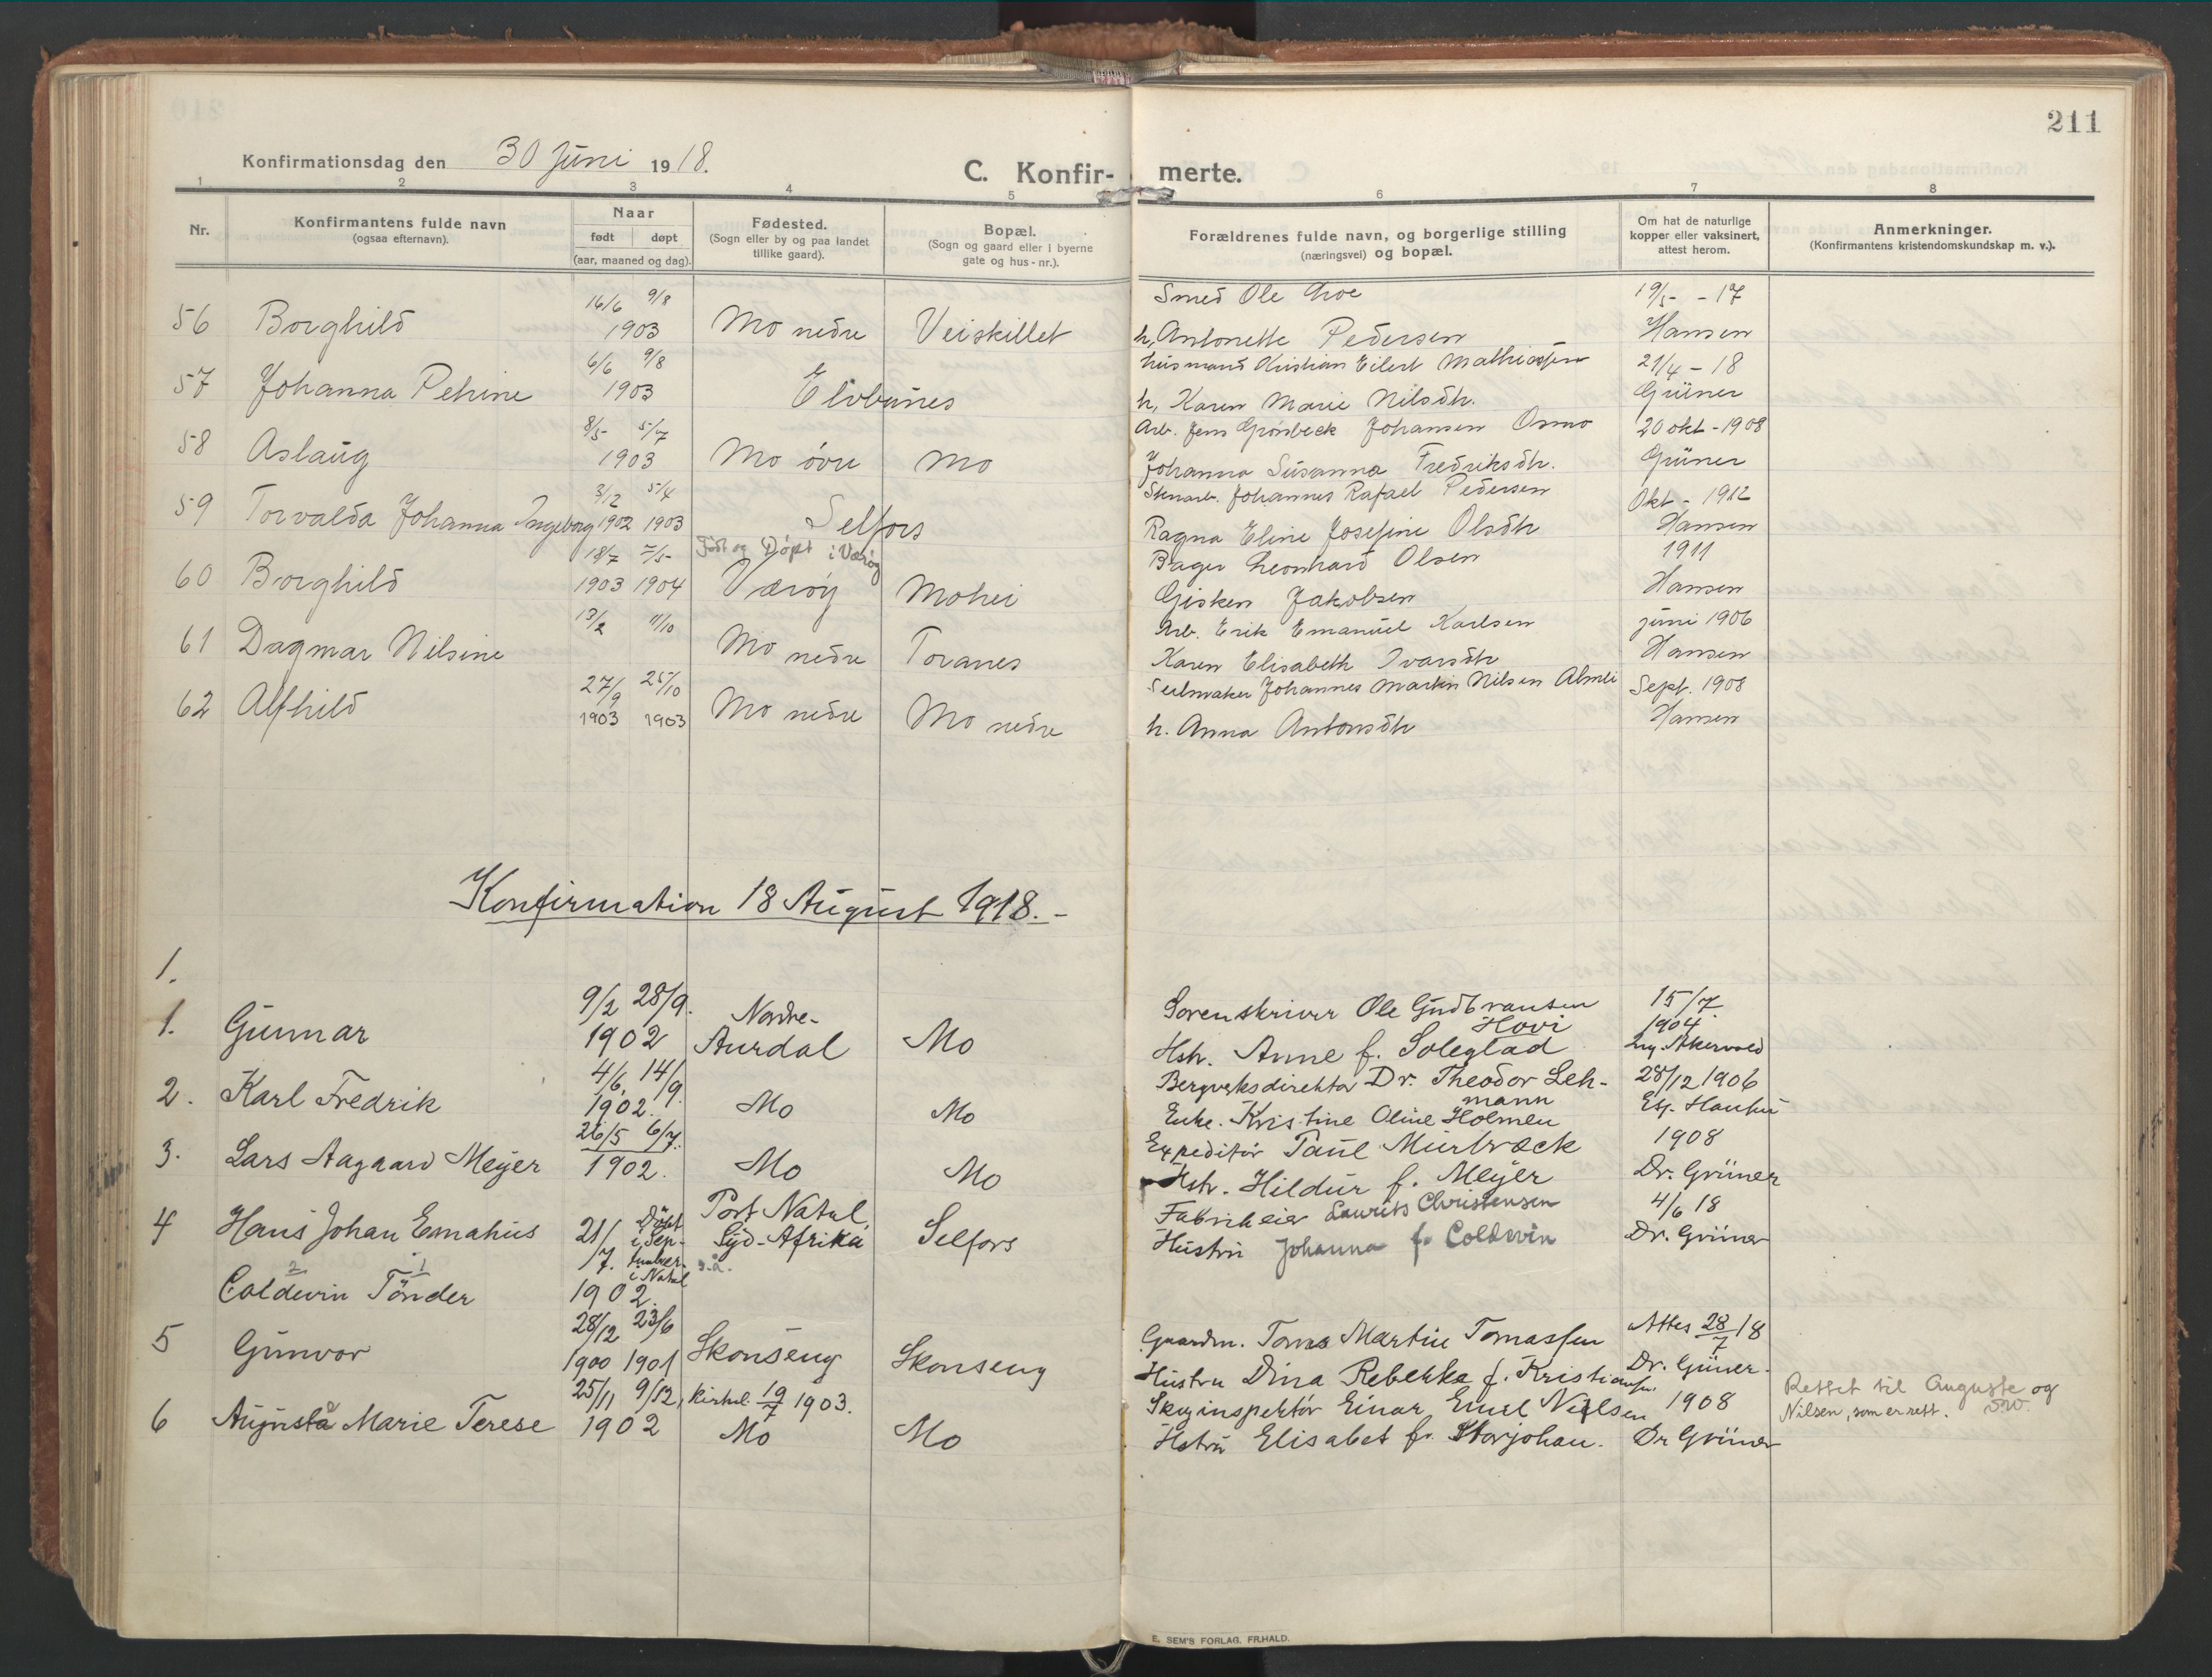 211
Konfirmationsdag den 30 Juni 1918.
C. Konfir- merte.
1 2 3 4 5 6 7 8
Nr.
Konfirmantens fulde navn
(ogsaa efternavn).
Naar
født døpt
(aar, maaned og dag).
Fødested.
(Sogn eller by og paa landet
tillike gaard).
Bopæl.
(Sogn og gaard eller i byerne
gate og hus-nr.).
Forældrenes fulde navn, og borgerlige stilling
(næringsvei) og bopæl.
Om hat de naturlige
kopper eller vaksinert,
attest herom.
Anmerkninger.
(Konfirmantens kristendomskundskap m. v.).
16/6 9/8 Smed Ole 19/5 - 17
56 Borghild 1903 Mo nedre Veiskillet h, Antonette Pedersen Hansen
6/6 9/8 husmand Kristian Eilert Mathiassen 21/4 - 18
57 Johanna Petrine 1903 h, Karen Marie Nilsdtr. Grüner
8/5 5/7 Arb. Jens Grønbeck Johansen Osmo 20 okt - 1908
58 Aslaug 1903 Mo övre Mo Johanna Susanna Fredriksdtr. Grüner
3/12 5/4 Johannes Rafael Pedersen Okt - 1912
59 Torvalda Johanna Ingeborg 1902 1903 Selfors Ragna Eline Josefine Olsdtr Hansen
18/7 7/5 Født og Døpt i Værøy Bager Leonhard Olsen 1911
60 Borghild 1903 1904 Værøy Mohei Gisken Jakobsen Hansen
13/2 11/10 Arb. Erik Emanuel Karlsen juni 1906
61 Dagmar Nilsine Mo nedre Toranes Karen Elisabeth Ivarsdtr Hansen
27/9 25/10 Seilmaker Johannes Martin Nilsen Almli Sept. 1908
62 Alfhild 1903 1903 Mo nedre Mo nedre h. Anna Antonsdtr Hansen
Konfirmation 18 August 1918.-
1.
9/2 28/9. Nordre- Sorenskriver Ole Gudbransen 15/7
1. Gunnar 1902 Aurdal Mo Hovi 1904
Hstr. Anne f. Soleglad
4/6. 14/9. Bergverksdirektør Dr. Theodor Leh- 28/12 1906
2. Karl Fredrik 1902. Mo Mo mann
Enke. Kristine Oline Holmen
26/5 6/7. Expeditør Paul Mürbræck 1908
3. Lars Aagaard Meyer 1902. Mo Mo Hstr. Hildur f. Meyer Dr. Grüner
Port Natal, Fabrikeier Laurits Christensen 4/6 18
4 Hans Johan Emahus 21/7. Døpt i Sep- Syd-Afrika Selfors Hustru Johanna f. Coldevin Dr. Grüner
tember i Natal s.å.
2 1
Coldevin Tönder 1902.
28/12 23/6 Gaardm. Toms Martin Tomassen Attes 28/7 18
5 Gunvor 1900 1901 Skonseng Skonseng Hustru Dina Rebekka f. Kristiansen. Dr. Grüner.
25/11 9/12, kirkel. 19/7 1903. Skoginspektør Einar Emil Nielsen 1908 Rettet til Auguste og
6 Augusta Marie Terese 1902 Mo Mo Hstru Elisabet f. Storjohan. Dr Grüner Nilsen, som er rett.
E. SEM'S FORLAG, FR.HALD.